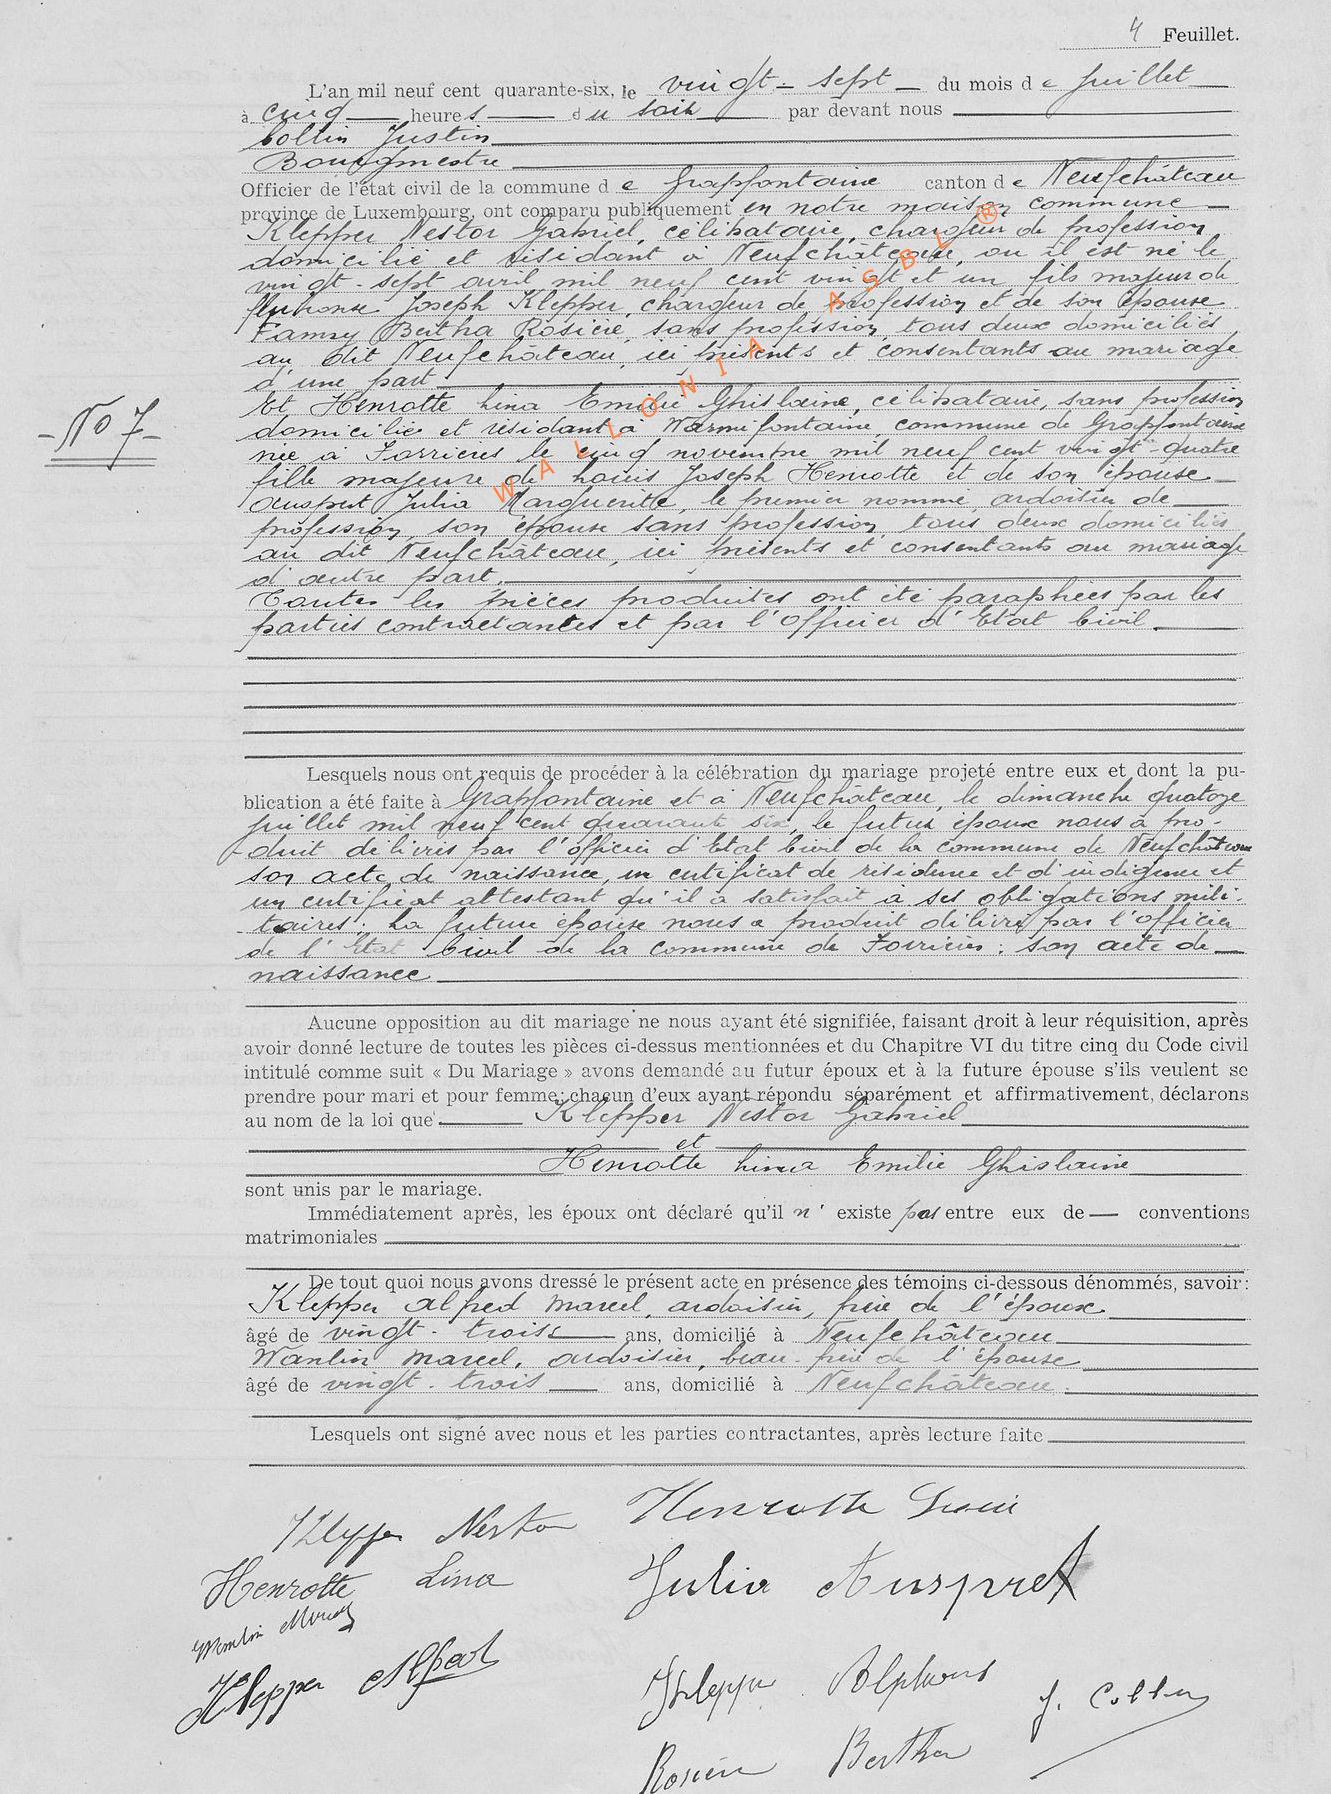 4 Feuillet.
L'an mil neuf cent quarante-six, le vingt-sept du mois de juillet
à cinq heures du soir par devant nous
Collin Justin
Bourgmestre
Officier de l'état civil de la commune de Grapfontaine canton de Neufchâteau
province de Luxembourg, ont comparu publiquement en notre maison commune
Klepper Nestor Gabriel, célibataire, chargeur de profession
domicilié et résidant à Neufchâteau, ou il est né le
vingt-sept avril mil neuf cent vingt et un fils majeur de
Alphonse Joseph Klepper, chargeur de profession et de son épouse
Fanny Bertha Rosière, sans profession, tous deux domiciliés
au dit Neufchâteau, ici présents et consentants au mariage
d'une part
Et Henrotte Lina Emilie Ghislaine, célibataire, sans profession
- No 7 -
domiciliée et résidant à Warmifontaine, commune de Grapfontaine
née à Forrières le cinq novembre mil neuf cent vingt-quatre
fille majeure de Louis Joseph Henrotte et de son épouse
Auspert Julia Marguerite, le premier nommé, ardoisier de
profession, son épouse sans profession, tous deux domiciliés
au dit Neufchâteau, ici présents et consentants au mariage
d'autre part.
Toutes les pièces produites ont été paraphées par les
parties contractantes et par l'Officier d'Etat Civil.
WALLONIA ASBL ®
Lesquels nous ont requis de procéder à la célébration du mariage projeté entre eux et dont la pu-
blication a été faite à Grapfontaine et à Neufchâteau, le dimanche quatorze
juillet mil neuf cent quarante six, le futur époux nous a pro-
duit délivrés par l'officier d'Etat Civil de la commune de Neufchâteau
son acte de naissance, un certificat de résidence et d'indigence et
un certificat attestant qu'il a satisfait à ses obligations mili-
taires; La future épouse nous a produit délivré par l'officier
de l'Etat Civil de la commune de Forrières: son acte de
naissance
Aucune opposition au dit mariage ne nous ayant été signifiée, faisant droit à leur réquisition, après
avoir donné lecture de toutes les pièces ci-dessus mentionnées et du Chapitre VI du titre cinq du Code civil
intitulé comme suit « Du Mariage » avons demandé au futur époux et à la future épouse s'ils veulent se
prendre pour mari et pour femme; chacun d'eux ayant répondu séparément et affirmativement, déclarons
au nom de la loi que Klepper Nestor Gabriel
et
Henrotte Lina Emilie Ghislaine
sont unis par le mariage.
Immédiatement après, les époux ont déclaré qu'il n'existe pas entre eux de conventions
matrimoniales
De tout quoi nous avons dressé le présent acte en présence des témoins ci-dessous dénommés, savoir:
Klepper Alfred Marcel, ardoisier, frère de l'époux
âgé de vingt-trois ans, domicilié à Neufchâteau
Wanlin Marcel, ardoisier, beau-frère de l'épouse
âgé de vingt-trois ans, domicilié à Neufchâteau.
Lesquels ont signé avec nous et les parties contractantes, après lecture faite
Klepper Nestor
Henrotte Louis
Henrotte Lina
Julia Auspert
Wanlin Marcel
Klepper Alfred
Klepper Alphonse
J. Collin
Rosière Bertha